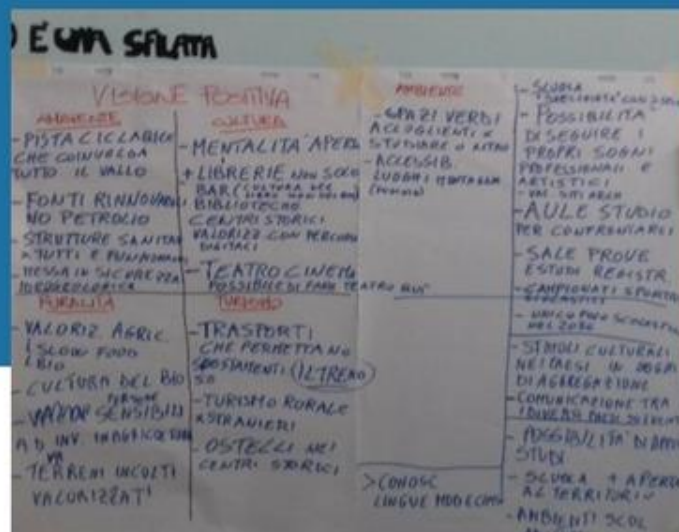 È UN SFILATA
VISIONE POSITIVA
AMBIENTE
- PISTA CICLABILE
CHE COINVOLGA
TUTTO IL VALLO
- FONTI RINNOVABILI
NO PETROLIO
- STRUTTURE SANITA
A TUTTI E FUNZIONAN
- MESSA IN SICUREZZA
IDROGEOLOGICA
RURALITÀ
- VALORIZ. AGRIC.
SLOW FOOD
BIO
- CULTURA DEL BIO
PERSONE
SENSIBILI
AD INV. IN AGRICOLTURA
- TERRENI INCOLTI
VALORIZZATI
CULTURA
- MENTALITÀ APERT
+ LIBRERIE NON SOLO
BAR (CULTURA DEL
BIBLIOTECHE
CENTRI STORICI
VALORIZZ. CON PERCORSI
DIGITALI
- TEATRO CINEMA
POSSIBILE DI FARE TEATRO QUI
TURISMO
- TRASPORTI
CHE PERMETTANO
SPOSTAMENTI (IL TRENO)
- TURISMO RURALE
X STRANIERI
- OSTELLI NEI
CENTRI STORICI
AMBIENTE
- SPAZI VERDI
ACCOGLIENTI X
STUDIARE O ALTRO
- ACCESSIB.
LUOGHI MONTAGNA
> CONOSC
LINGUE MODERNE
- SCUOLA
- POSSIBILITÀ
DI SEGUIRE I
PROPRI SOGNI
PROFESSIONALI E
ARTISTICI
- AULE STUDIO
PER CONFRONTARCI
- SALE PROVE
STUDI REGISTR.
- CAMPIONATI SPORTIVI
SCOLASTICI
- UNICO POLO SCOLASTICO
NEL 2030
- STIMOLI CULTURALI
NEI PAESI IN
DI AGGREGAZIONE
- COMUNICAZIONE TRA
I DIVERSI PAESI
- POSSIBILITÀ DI
STUDI
- SCUOLA + APERTA
AL TERRITORIO
- AMBIENTI SCOL.